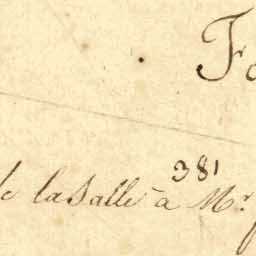 Fo
381
de laSalle à Mr.